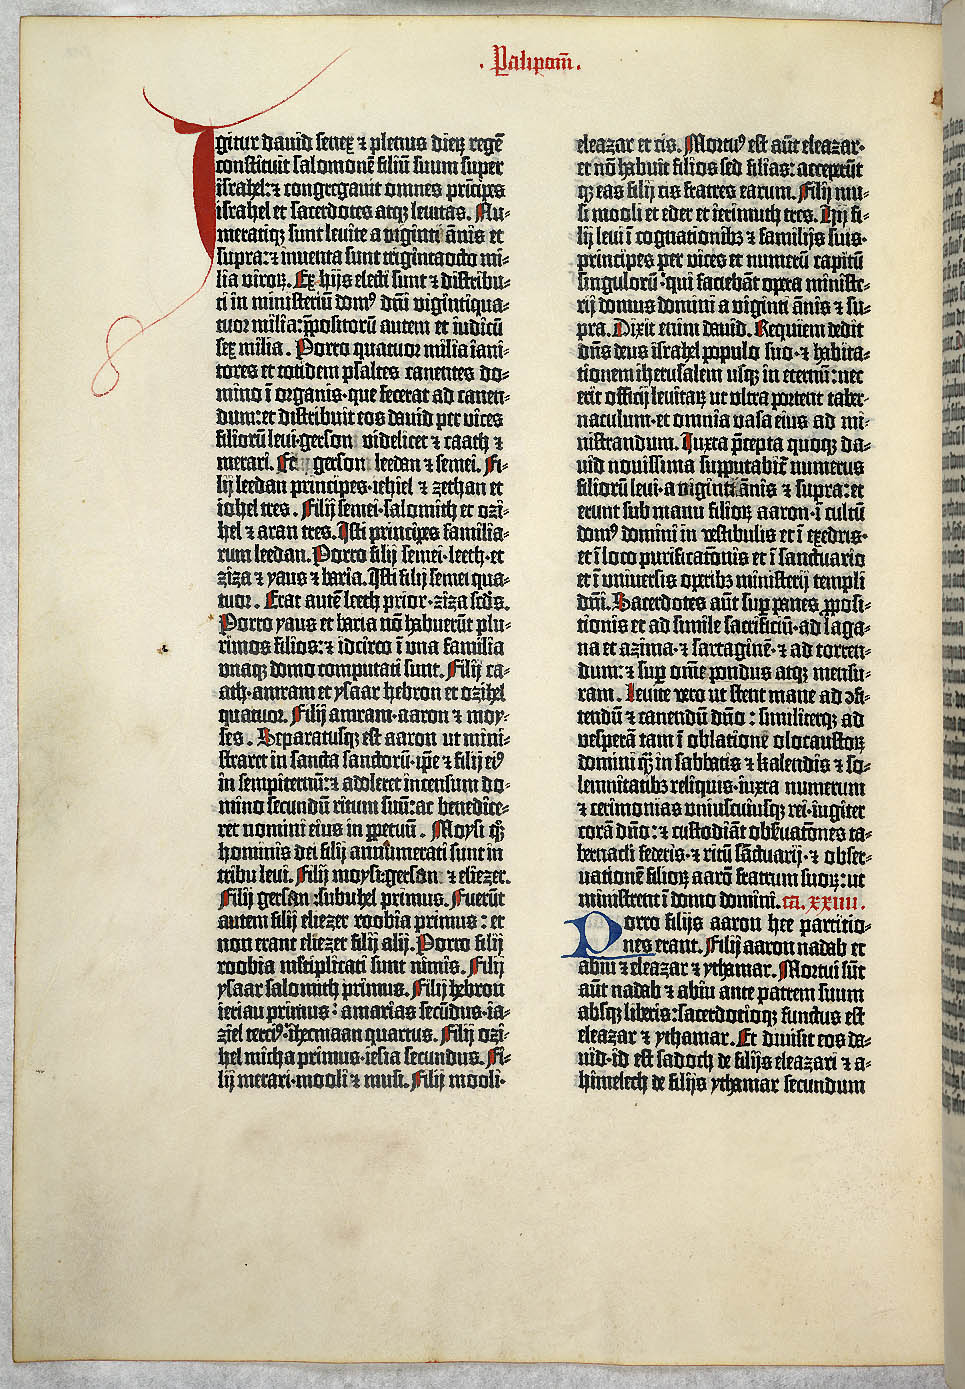 . Palipom̄.
Igitur dauid senex ⁊ plenus dieꝝ regē
constituit salomonē filiū suum super
israhel: ⁊ congregauit omnes prīcipes
israhel et sacerdotes atqꝫ leuitas. Nu-
meratiqꝫ sunt leuite a viginti ānis et
supra: ⁊ inuenta sunt trigintaocto mi-
lia viroꝝ. Ex hijs electi sunt ⁊ distribu-
ti in ministeriū domꝰ dn̄i vigintiqua-
tuor milia: p̄positorū autem et iudicū
sex milia. Porro quatuor milia iani-
tores et totidem psaltes canentes do-
mino ī organis · que fecerat ad canen-
dum: et distribuit eos dauid per vices
filiorū leui · gerson videlicet ⁊ caath ⁊
merari. Et gerson leedan ⁊ semei. Fi-
lij leedan principes · iehiel ⁊ zethan et
iohel tres. Filij semei · salomith et ozi-
hel ⁊ aran tres. Isti principes familia-
rum leedan. Porro filij semei · leeth · et
ziza ⁊ yaus ⁊ baria. Isti filij semei qua-
tuor. Erat autē leeth prior · ziza scd̄s.
Porro yaus et baria nō habuerūt plu-
rimos filios: ⁊ idcirco ī vna familia
vnaqꝫ domo computati sunt. Filij ca-
ath · amram et ysaar hebron et ozihel
quatuor. Filij amram · aaron ⁊ moy-
ses. Separatusqꝫ est aaron ut mini-
straret in sancta sanctorū · ip̄e ⁊ filij eiꝰ
in sempiternū: ⁊ adoleret incensum do-
mino secundū ritum suū: ac benedice-
ret nomini eius in ꝑpetuū. Moysi qꝫ
hominis dei filij annumerati sunt in
tribu leui. Filij moysi: gersan ⁊ eliezer.
Filij gersan: subuhel primus. Fuerūt
autem filij eliezer roobia primus: et
non erant eliezer filij alij. Porro filij
roobia ml̄tiplicati sunt nimis. Filij
ysaar salomith primus. Filij hebron
ieriau primus: amarias secūdus · ia-
ziel terciꝰ · ihecmaan quartus. Filij ozi-
hel micha primus · iesia secundus. Fi-
lij merari · mooli ⁊ musi. Filij mooli ·
eleazar et cis. Mortuꝰ est aūt eleazar ·
et nō habuit filios sed filias: acceperūt
qꝫ eas filij cis fratres earum. Filij mu-
si mooli et eder et ierimuth tres. Hij fi-
lij leui ī cognationibꝫ ⁊ familijs suis ·
principes per vices et numerū capitū
singulorū · qui faciebāt opera ministe-
rij domus domini a viginti ānis ⁊ su-
pra. Dixit enim dauid. Requiem dedit
dn̄s deus israhel populo suo · ⁊ habita-
tionem iherusalem usqꝫ in eternū: nec
erit officij leuitaꝝ ut vltra portent taber-
naculum · et omnia vasa eius ad mi-
nistrandum. Iuxta p̄cepta quoqꝫ da-
uid nouissima supputabit̄ numerus
filiorū leui · a viginti ānis ⁊ supra: et
erunt sub manu filioꝝ aaron · ī cultū
domꝰ domini in vestibulis et ī exedris ·
et ī loco purificatōnis et ī sanctuario
et ī vniuersis operibꝫ ministerij templi
dn̄i. Sacerdotes aūt suꝑ panes ꝓposi-
tionis et ad simile sacrificiū · ad laga-
na et azima · ⁊ sartaginē · ⁊ ad torren-
dum: ⁊ suꝑ om̄e pondus atqꝫ mensu-
ram. Leuite vero ut stent mane ad ꝯfi-
tendū ⁊ canendū dn̄o: similiterqꝫ ad
vesperā tam ī oblatione olocaustoꝝ
domini qꝫ in sabbatis ⁊ kalendis ⁊ so-
lemnitatibꝫ reliquis · iuxta numerum
⁊ cerimonias vniuscuiusqꝫ rei · iugiter
corā dn̄o: ⁊ custodiāt obẜuatōnes ta-
bernacli federis · ⁊ ritū sāctuarij · ⁊ obser-
uationē filioꝝ aarō fratrum suoꝝ: ut
ministrent ī domo domini. ca. xxiiii.
Porro filijs aaron hee partitio-
nes erant. Filij aaron nadab et
abiu ⁊ eleazar ⁊ ythamar. Mortui sūt
aūt nadab ⁊ abiu ante patrem suum
absqꝫ liberis: sacerdotioqꝫ functus est
eleazar ⁊ ythamar. Et diuisit eos da-
uid · id est sadoch de filijs eleazari ⁊ a-
himelech de filijs ythamar secundum